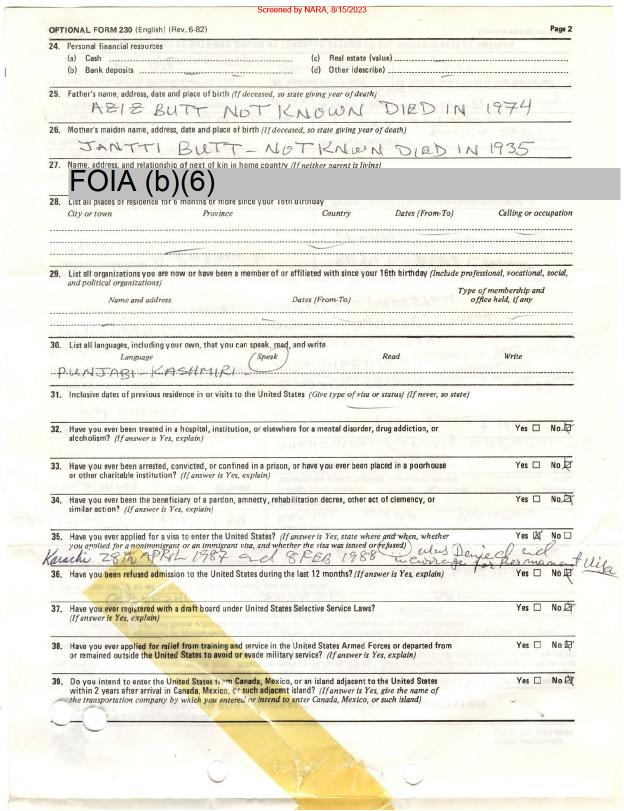 Screened by NARA, 8/15/2023
OPTIONAL FORM 230 (English) (Rev. 6-82) Page 2
24. Personal financial resources
(a) Cash (c) Real estate (value)
(b) Bank deposits (d) Other (describe)
25. Father's name, address, date and place of birth (If deceased, so state giving year of death)
AZIZ BUTT NOT KNOWN DIED IN 1974
26. Mother's maiden name, address, date and place of birth (If deceased, so state giving year of death)
JANTTI BUTT - NOT KNOWN DIED IN 1935
27. Name, address, and relationship of next of kin in home country (If neither parent is living)
FOIA (b)(6)
28. List all places of residence for 6 months or more since your 16th birthday
City or town Province Country Dates (From-To) Calling or occupation
29. List all organizations you are now or have been a member of or affiliated with since your 16th birthday (Include professional, vocational, social,
and political organizations)
Type of membership and
Name and address Dates (From-To) office held, if any
30. List all languages, including your own, that you can speak, read, and write
Language Speak Read Write
PUNJABI - KASHMIRI
31. Inclusive dates of previous residence in or visits to the United States (Give type of visa or status) (If never, so state)
32. Have you ever been treated in a hospital, institution, or elsewhere for a mental disorder, drug addiction, or Yes ☐ No ☒
alcoholism? (If answer is Yes, explain)
33. Have you ever been arrested, convicted, or confined in a prison, or have you ever been placed in a poorhouse Yes ☐ No ☒
or other charitable institution? (If answer is Yes, explain)
34. Have you ever been the beneficiary of a pardon, amnesty, rehabilitation decree, other act of clemency, or Yes ☐ No ☒
similar action? (If answer is Yes, explain)
35. Have you ever applied for a visa to enter the United States? (If answer is Yes, state where and when, whether Yes ☒ No ☐
you applied for a nonimmigrant or an immigrant visa, and whether the visa was issued or refused)
Karachi 28th APRIL 1987 and 8 FEB 1988 was Denied and
for Permanent Visa
36. Have you been refused admission to the United States during the last 12 months? (If answer is Yes, explain) Yes ☐ No ☒
37. Have you ever registered with a draft board under United States Selective Service Laws? Yes ☐ No ☒
(If answer is Yes, explain)
38. Have you ever applied for relief from training and service in the United States Armed Forces or departed from Yes ☐ No ☒
or remained outside the United States to avoid or evade military service? (If answer is Yes, explain)
39. Do you intend to enter the United States from Canada, Mexico, or an island adjacent to the United States Yes ☐ No ☒
within 2 years after arrival in Canada, Mexico, or such adjacent island? (If answer is Yes, give the name of
the transportation company by which you entered or intend to enter Canada, Mexico, or such island)